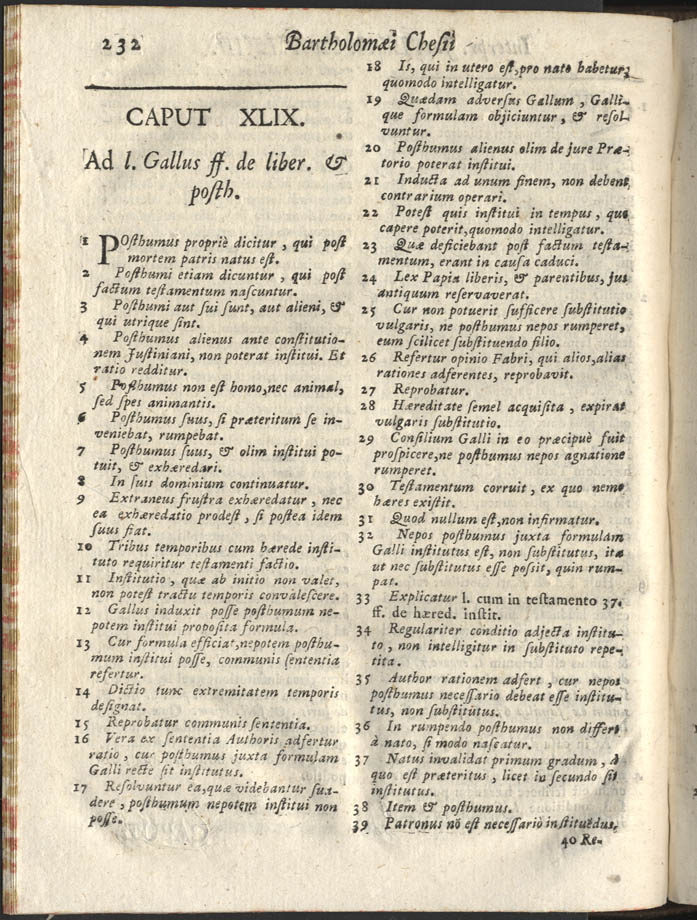 232 Bartholomæi Chesii
CAPUT XLIX.
Ad l. Gallus ff. de liber. &
posth.
1 POsthumus propriè dicitur, qui post
mortem patris natus est.
2 Posthumi etiam dicuntur, qui post
factum testamentum nascuntur.
3 Posthumi aut sui sunt, aut alieni, &
qui utrique sint.
4 Posthumus alienus ante constitutio-
nem Justiniani, non poterat institui. Et
ratio redditur.
5 Posthumus non est homo, nec animal,
sed spes animantis.
6 Posthumus suus, si præteritum se in-
veniebat, rumpebat.
7 Posthumus suus, & olim institui po-
tuit, & exhæredari.
8 In suis dominium continuatur.
9 Extraneus frustra exhæredatur, nec
ea exhæredatio prodest, si postea idem
suus fiat.
10 Tribus temporibus cum hærede insti-
tuto requiritur testamenti factio.
11 Institutio, quæ ab initio non valet,
non potest tractu temporis convalescere.
12 Gallus induxit posse posthumum ne-
potem institui proposita formula.
13 Cur formula efficiat, nepotem posthu-
mum institui posse, communis sententia
refertur.
14 Dictio tunc extremitatem temporis
designat.
15 Reprobatur communis sententia.
16 Vera ex sententia Authoris adfertur
ratio, cur posthumus juxta formulam
Galli recte sit institutus.
17 Resolvuntur ea, quæ videbantur sua-
dere, posthumum nepotem institui non
posse.
18 Is, qui in utero est, pro nato habetur,
quomodo intelligatur.
19 Quædam adversus Gallum, Galli-
que formulam objiciuntur, & resol-
vuntur.
20 Posthumus alienus olim de jure Præ-
torio poterat institui.
21 Inducta ad unum finem, non debent
contrarium operari.
22 Potest quis institui in tempus, quo
capere poterit, quomodo intelligatur.
23 Quæ deficiebant post factum testa-
mentum, erant in causa caduci.
24 Lex Papia liberis, & parentibus, jus
antiquum reservaverat.
25 Cur non potuerit sufficere substitutio
vulgaris, ne posthumus nepos rumperet,
eum scilicet substituendo filio.
26 Refertur opinio Fabri, qui alios, alias
rationes adferentes, reprobavit.
27 Reprobatur.
28 Hæreditate semel acquisita, expirat
vulgaris substitutio.
29 Consilium Galli in eo præcipuè fuit
prospicere, ne posthumus nepos agnatione
rumperet.
30 Testamentum corruit, ex quo nemo
hæres existit.
31 Quod nullum est, non infirmatur.
32 Nepos posthumus juxta formulam
Galli institutus est, non substitutus, ita
ut nec substitutus esse possit, quin rum-
pat.
33 Explicatur l. cum in testamento 37.
ff. de hæred. instit.
34 Regulariter conditio adjecta institu-
to, non intelligitur in substituto repe-
tita.
35 Author rationem adfert, cur nepos
posthumus necessario debeat esse institu-
tus, non substitutus.
36 In rumpendo posthumus non differt
à nato, si modo nascatur.
37 Natus invalidat primum gradum, à
quo est præteritus, licet in secundo sit
institutus.
38 Item & posthumus.
39 Patronus nõ est necessariò instituẽdus.
40 Re-